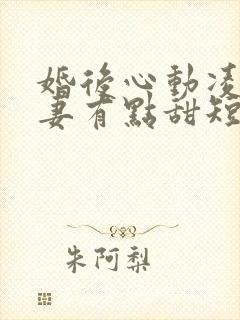 婚後心動凌
妻有點甜短
朱阿梨